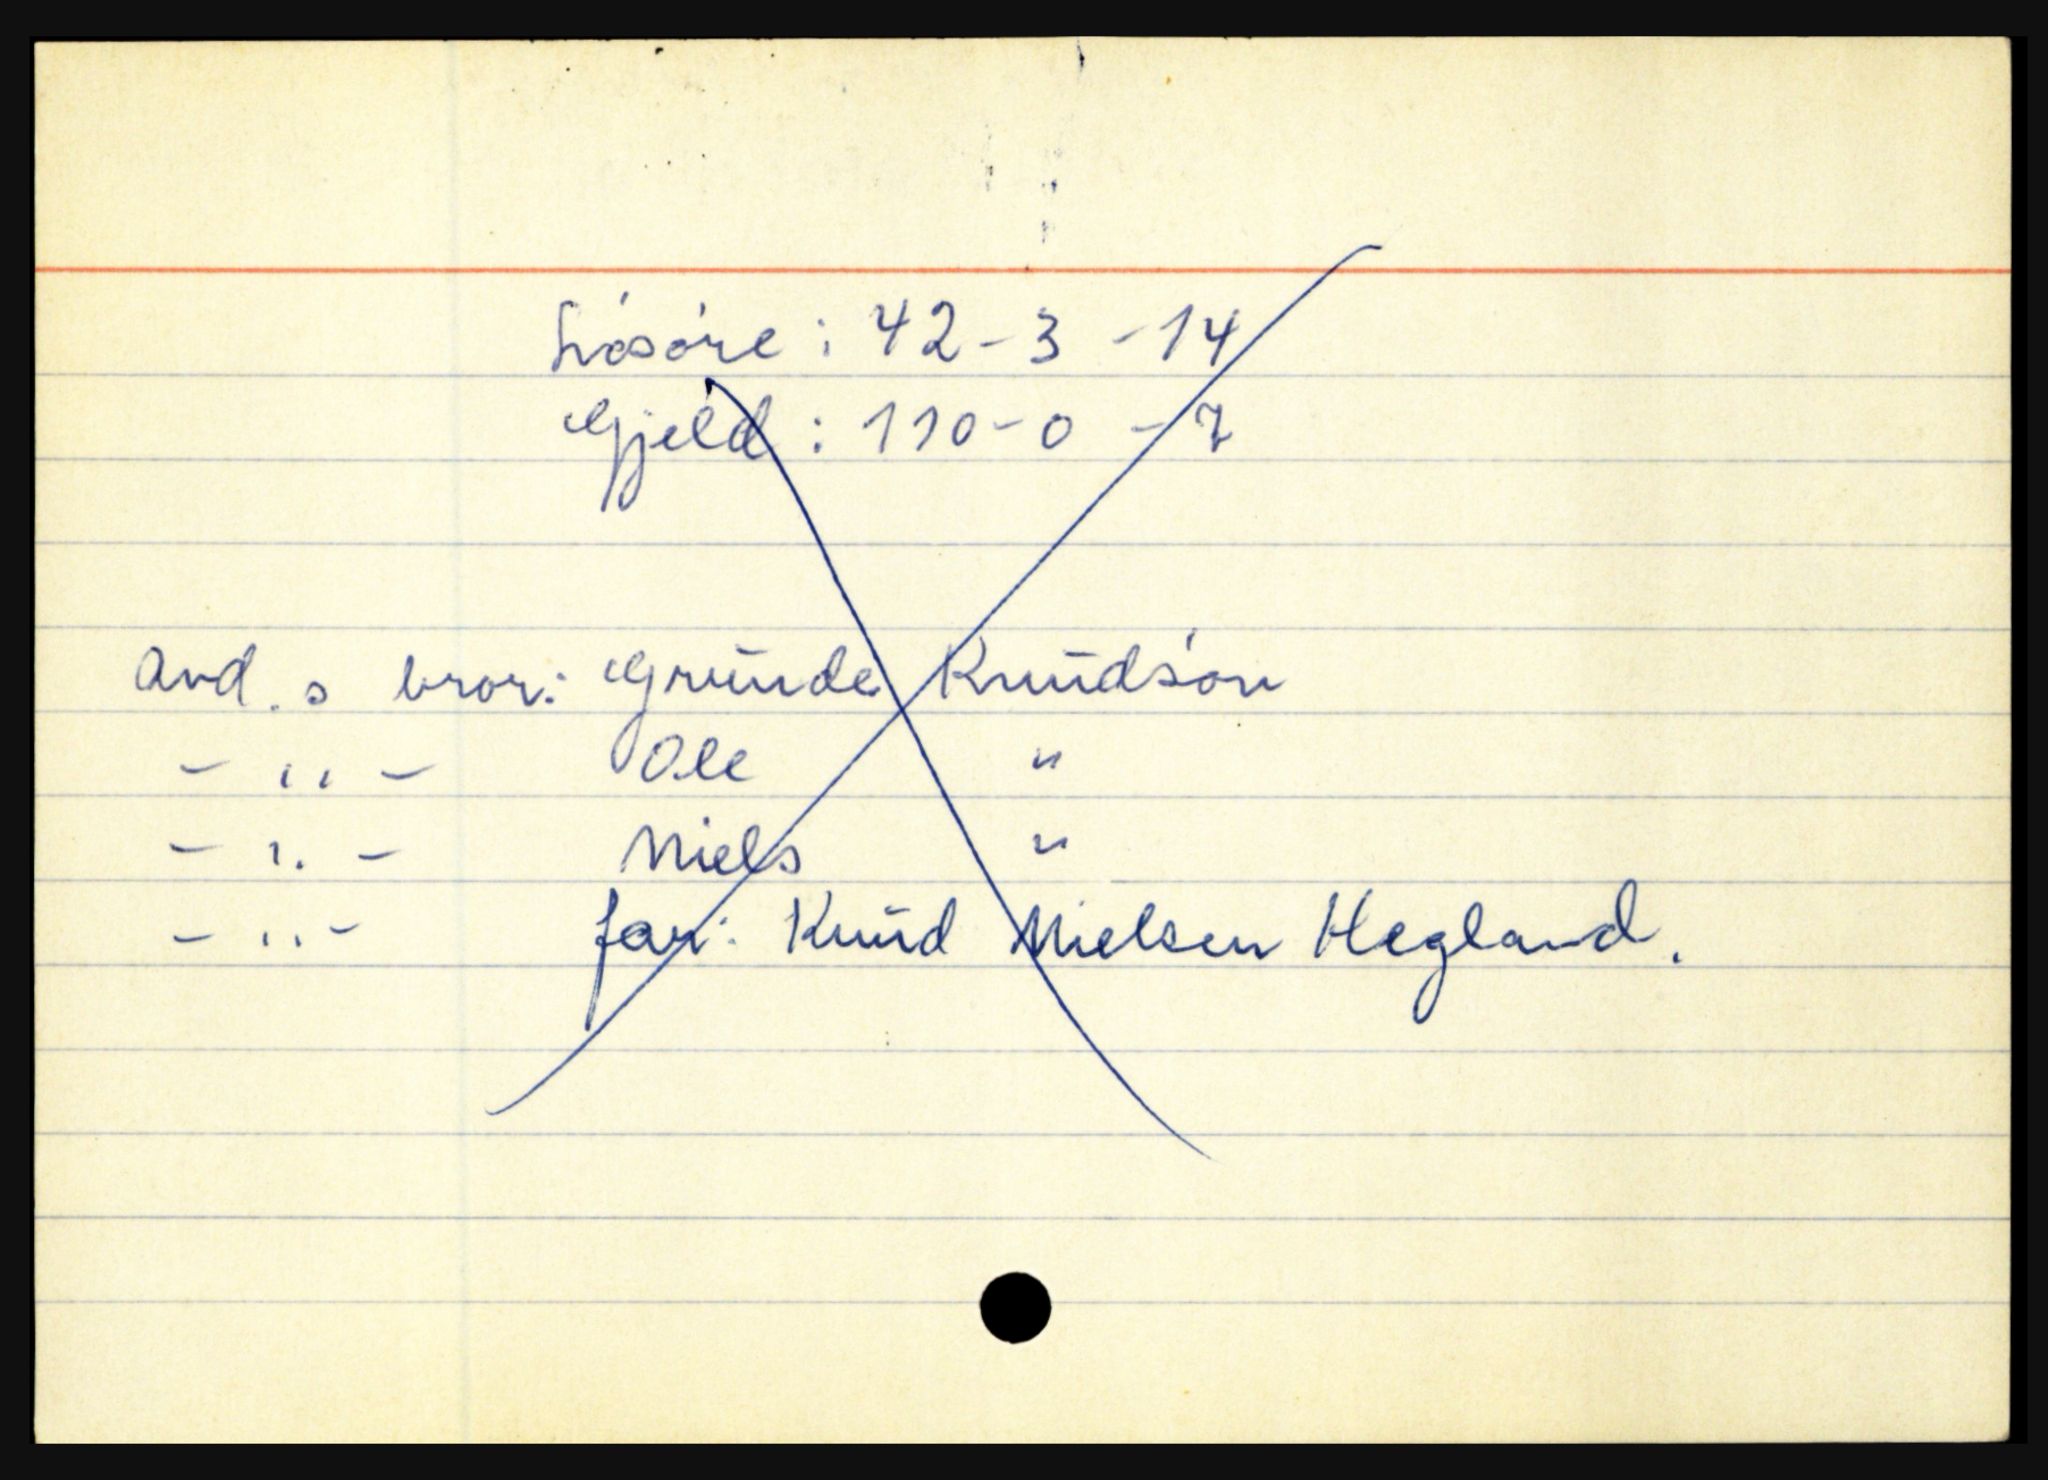 Lösöre : 42 - 3 - 14
Gjeld : 110 - 0 - 7
Avd. s bror: Grunde Knudsøn
- ,, - Ole "
- ,, - Niels "
- ,, - far: Knud Nielsen Hegland.